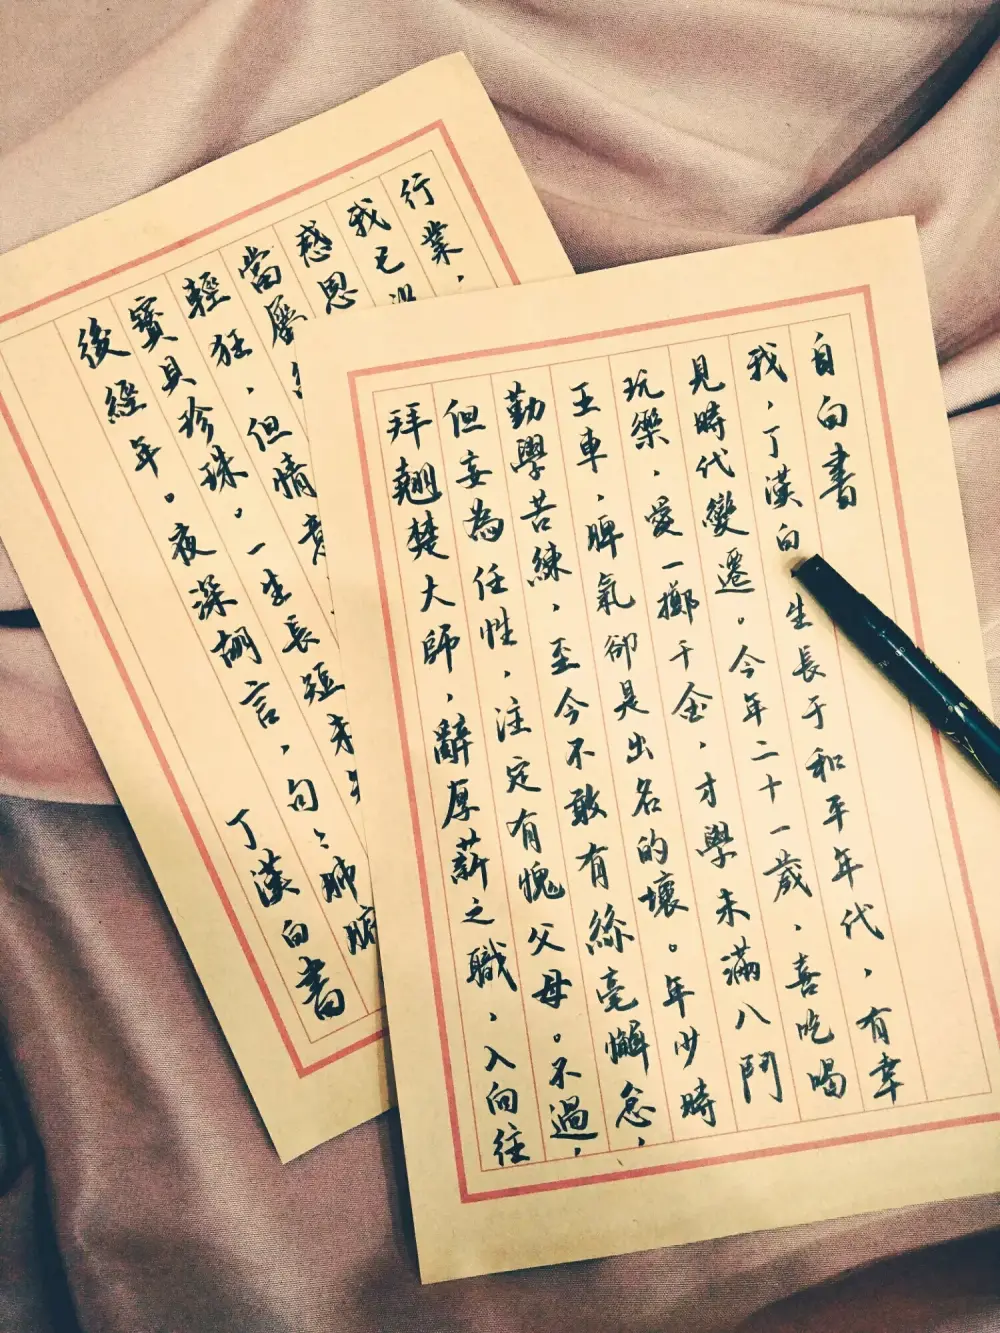 自白書
我，丁漢白，生長于和平年代，有幸
見時代變遷。今年二十一歲，喜吃喝
玩樂，愛一擲千金，才學未滿八鬥
王車，脾氣卻是出名的壞。年少時
勤學苦練，至今不敢有絲毫懈怠，
但妄為任性，注定有愧父母。不過，
拜翹楚大師，辭厚薪之職，入向往
行業，
我已
感恩
當屬
輕狂，但情意
寶貝珍珠。一生長短未
後經年。夜深胡言，句〻肺腑
丁漢白書